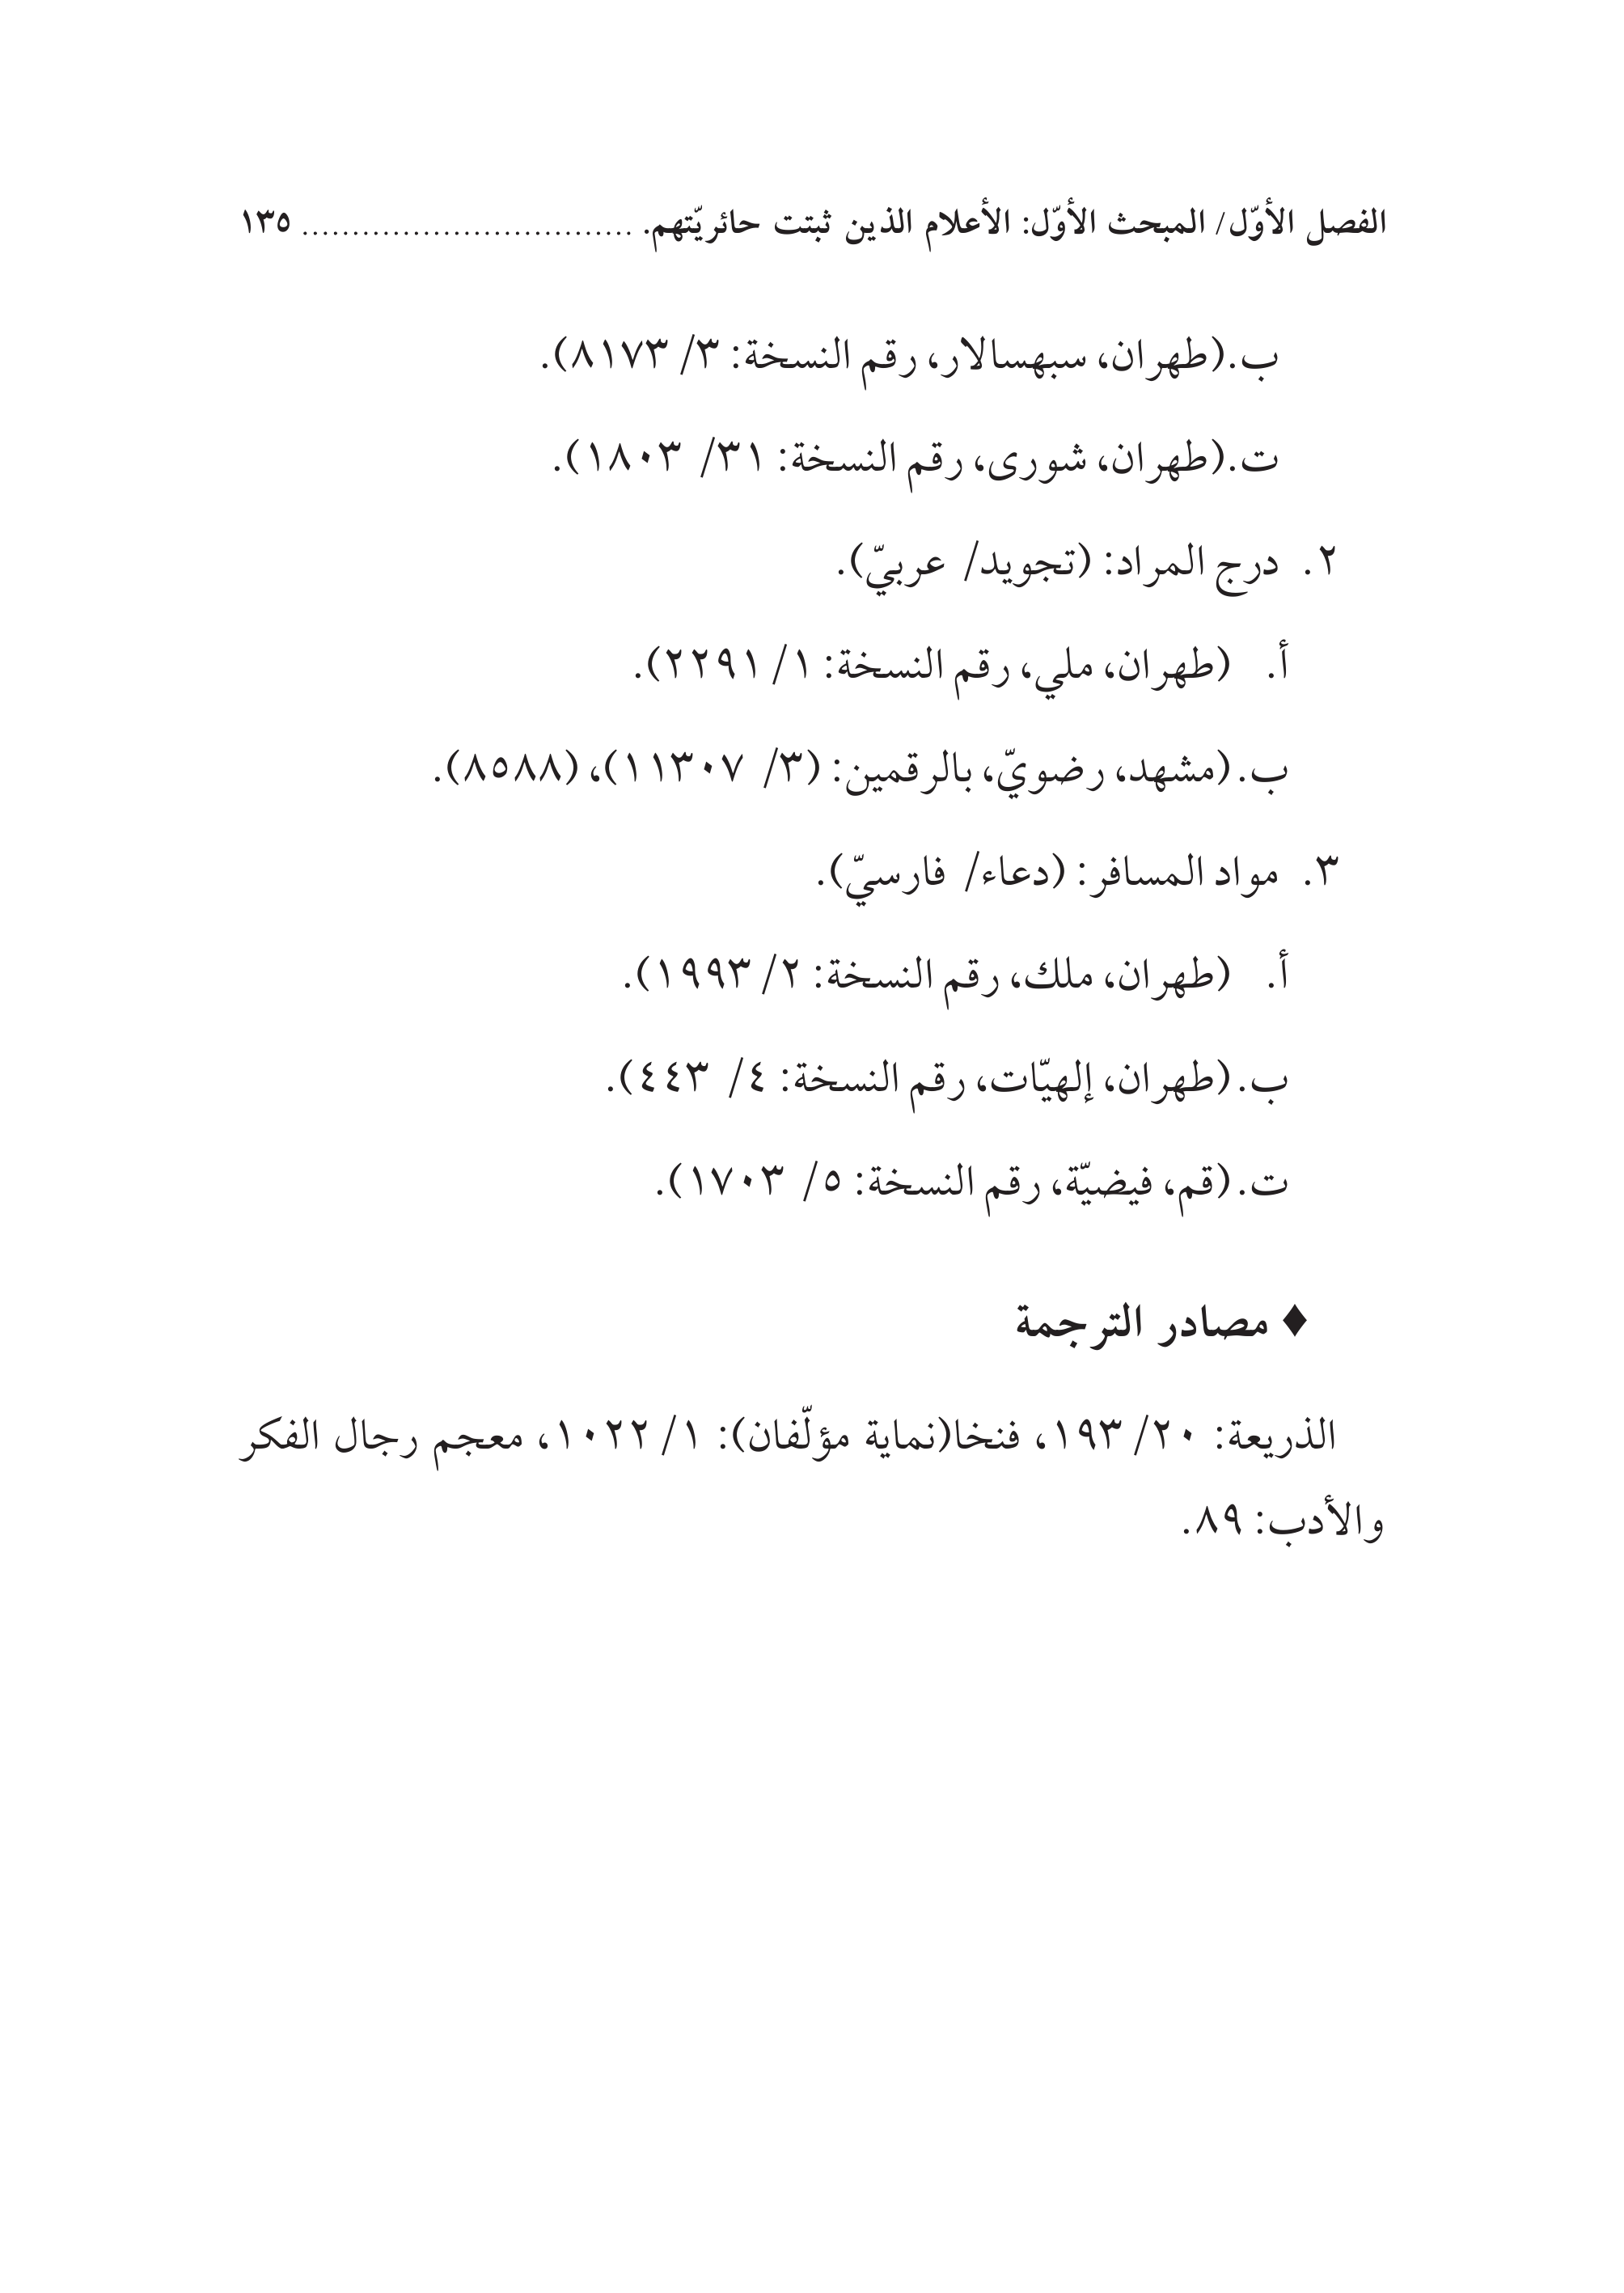 الفصل الأوّل/ المبحث الأوّل: الأعلام الذين ثبتت حائريّتهم. ................................. ١٣٥
ب.(طهران، سبهسالار، رقم النسخة: ٣/ ٨١٧٣).
ت.(طهران، شورى، رقم النسخة: ٣١/ ١٨٠٣).
٢. درج المراد: (تجويد/ عربيّ).
أ. (طهران، ملي، رقم النسخة: ١/ ٢٢٩١).
ب.(مشهد، رضويّ، بالرقمين: (٣/ ١١٣٠٧)، (٨٥٨٨).
٣. مواد المسافر: (دعاء/ فارسيّ).
أ. (طهران، ملك، رقم النسخة: ٢/ ١٩٩٣).
ب.(طهران، إلهيّات، رقم النسخة: ٤/ ٤٤٣).
ت.(قم، فيضيّة، رقم النسخة: ٥/ ١٧٠٣).
♦ مصادر الترجمة
الذريعة: ٢٠/ ١٩٣، فنخا(نماية مؤلّفان): ١/ ١٠٢٢، معجم رجال الفكر
والأدب: ٨٩.